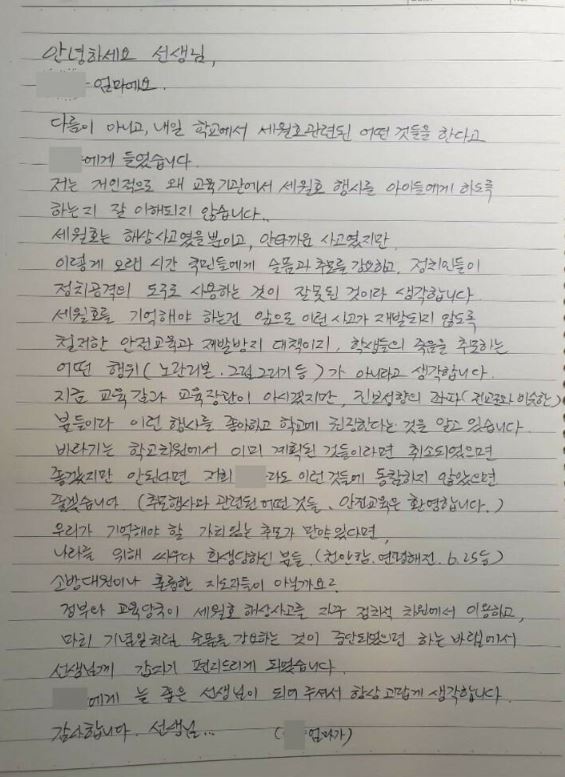 안녕하세요 선생님,
엄마예요.
다름이 아니고, 내일 학교에서 세월호관련된 어떤 것들을 한다고
에게 들었습니다.
저는 개인적으로 왜 교육기관에서 세월호 행사를 아이들에게 하도록
하는지 잘 이해되지 않습니다..
세월호는 해상사고였을뿐이고, 안타까운 사고였지만
이렇게 오랜 시간 국민들에게 슬픔과 추모를 강요하고, 정치인들이
정치공격의 도구로 사용하는 것이 잘못된 것이라 생각합니다
세월호를 기억해야 하는건 앞으로 이런 사고가 재발되지 않도록
철저한 안전교육과 재발방지 대책이지, 학생들의 죽음을 추모하는
어떤 행위(노란리본·그림그리기 등)가 아니라고 생각합니다.
지금 교육감과 교육장관이 아시겠지만, 진보성향의 좌파(전교조와 비슷한)
분들이다 이런 행사를 좋아하고 학교에 권장한다는 것을 알고 있습니다.
바라기는 학교차원에서 이미 계획된 것들이라면 취소되었으면
좋겠지만 안된다면 저희 라도 이런 것들에 동참하지 않았으면
좋겠습니다 (추모행사과 관련된 어떤것들. 안전교육은 환영합니다.)
우리가 기억해야 할 가치있는 추모가 만약있다면,
나라를 위해 싸우다 희생당하신 분들. (천안함. 연평해전. 6.25등)
소방대원이나 훌륭한 지도자들이 아닐까요?
정부와 교육당국이 세월호 해상사고를 자꾸 정치적 차원에서 이용하고,
마치 기념일처럼 슬픔을 강요하는 것이 중단되었으면 하는 바램에서
선생님께 갑자기 편지드리게 되었습니다.
에게 늘 좋은 선생님이 되어 주셔서 항상 고맙게 생각합니다.
감사합니다. 선생님... ( 엄마가)